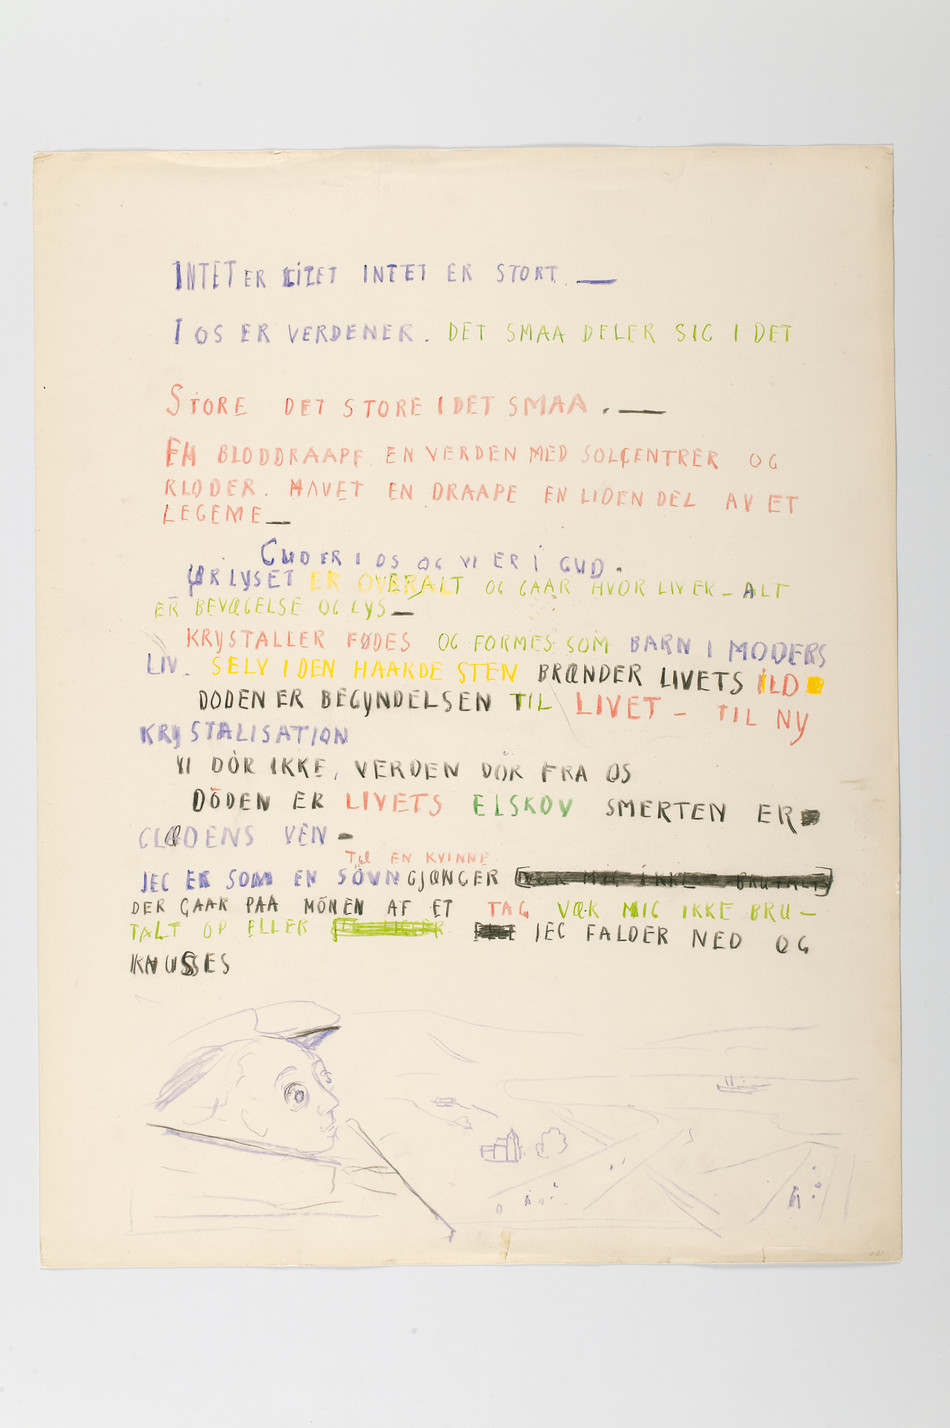 INTET ER LITET INTET ER STORT. —
I OS ER VERDENER. DET SMAA DELER SIG I DET
STORE DET STORE I DET SMAA. —
EN BLODDRAAPE EN VERDEN MED SOLCENTRER OG
KLODER. HAVET EN DRAAPE EN LIDEN DEL AV ET
LEGEME —
GUD ER I OS OG VI ER I GUD.
URLYSET ER OVERALT OG GAAR HVOR LIV ER – ALT
ER BEVÆGELSE OG LYS —
KRYSTALLER FØDES OG FORMES SOM BARN I MODERS
LIV. SELV I DEN HAARDE STEN BRÆNDER LIVETS ILD
DÖDEN ER BEGYNDELSEN TIL LIVET – TIL NY
KRYSTALISATION
VI DÖR IKKE, VERDEN DÖR FRA OS
DÖDEN ER LIVETS ELSKOV SMERTEN ER
GLÆDENS VEN –
TIL EN KVINNE
JEG ER SOM EN SÖVNGJÆNGER VÆK MIG IKKE BRUTALT
DER GAAR PAA MÖNEN AF ET TAG VÆK MIG IKKE BRU –
TALT OP ELLER JEG FALDER NED OG
KNUSSES